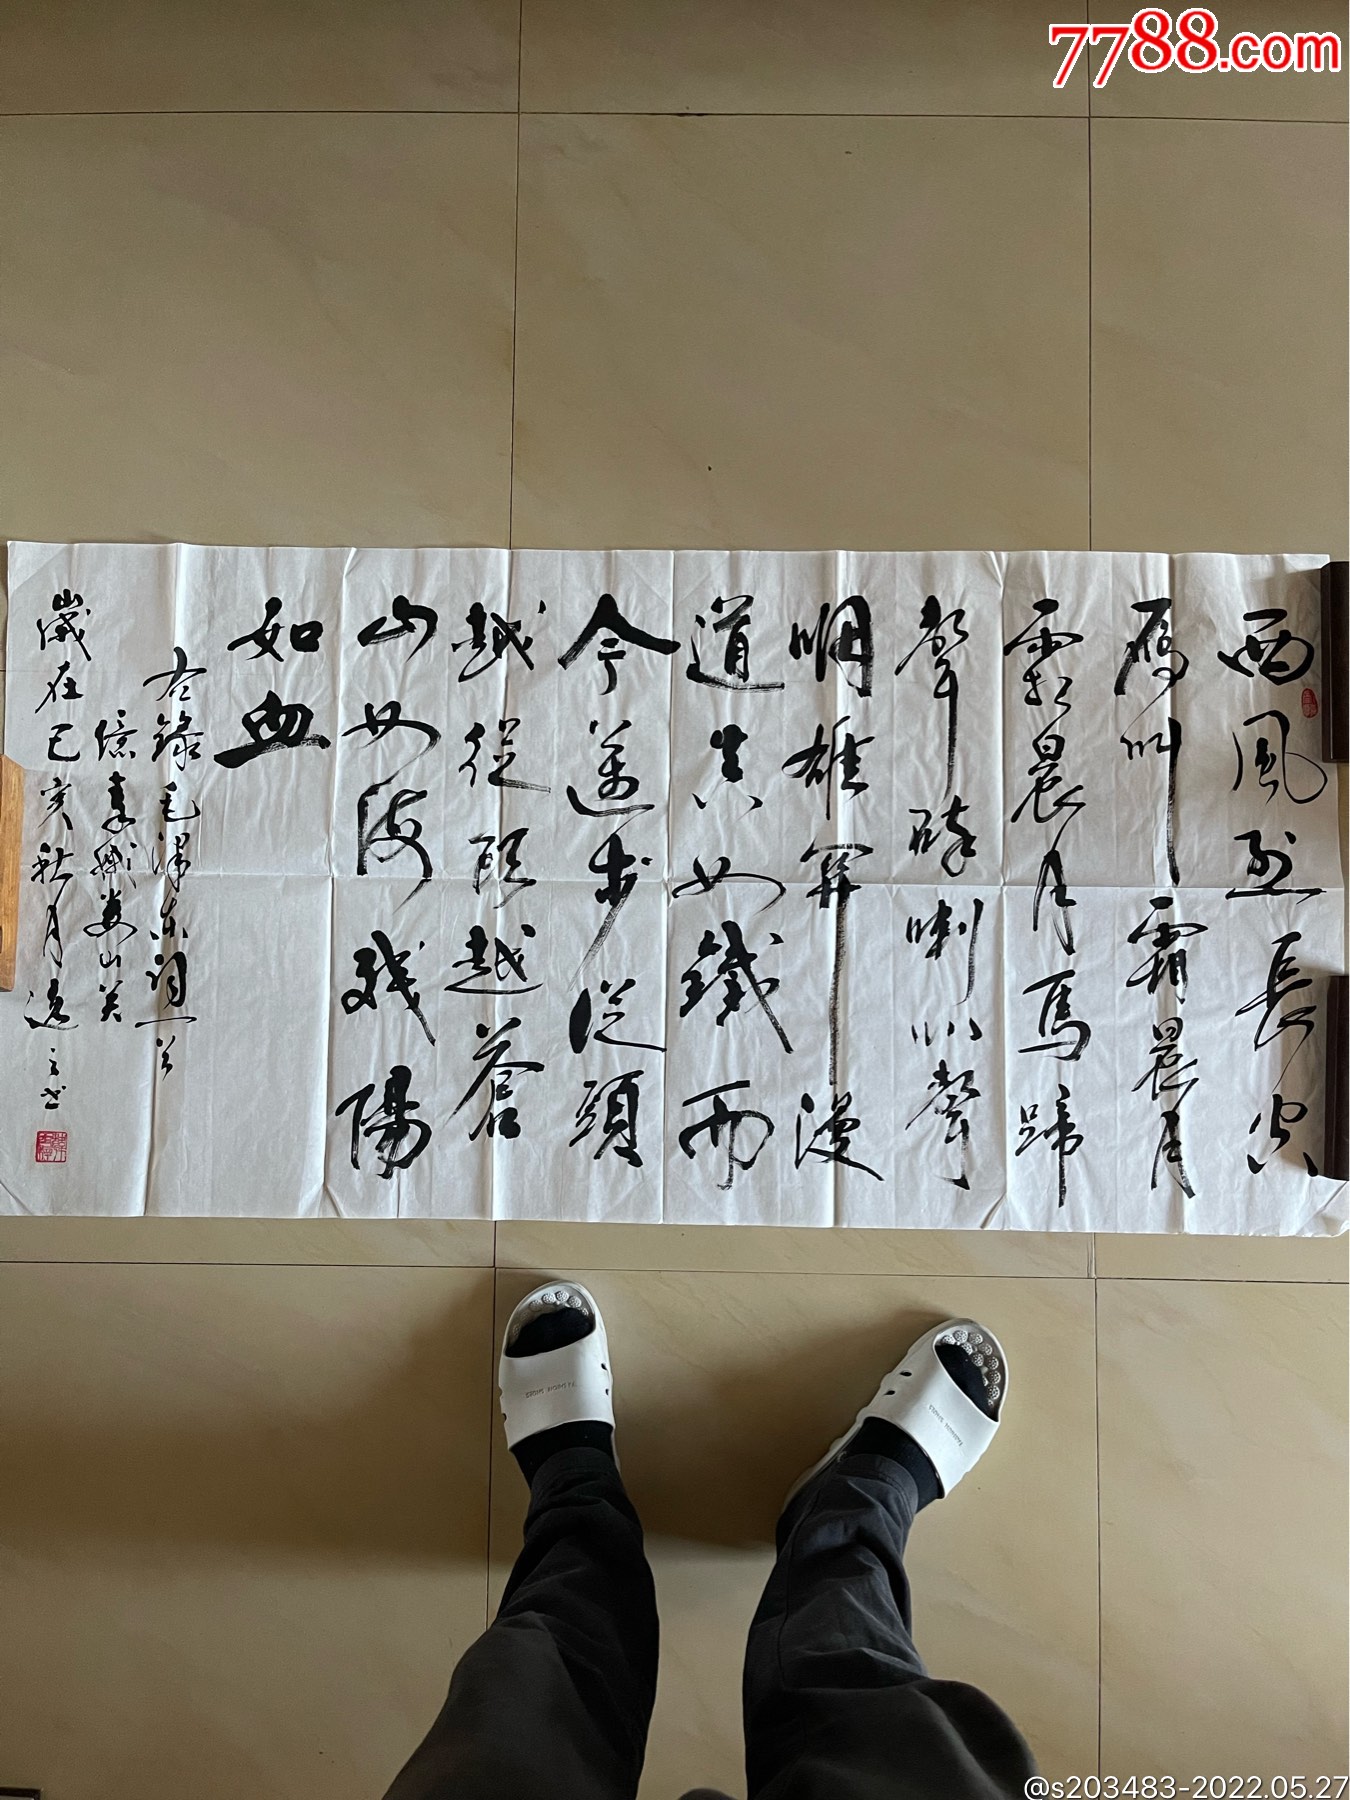 7788.com
西風烈長空
雁叫霜晨月
霜晨月馬蹄
聲碎喇叭聲
咽雄關漫
道真如鐵而
今邁步從頭
越從頭越蒼
山如海殘陽
如血
右錄毛澤東詞一首
憶秦娥婁山关
歲在己亥秋月逸之书
FASHION SHOES
FASHION SHOES
@s203483-2022.05.27